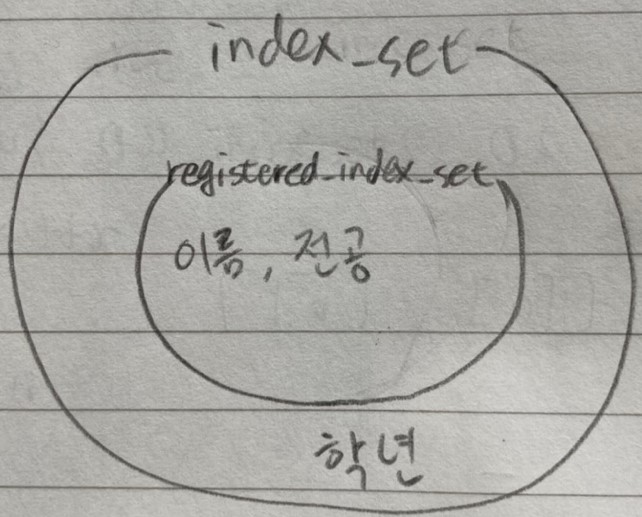 index_set
registered_index_set
이름, 전공
학년